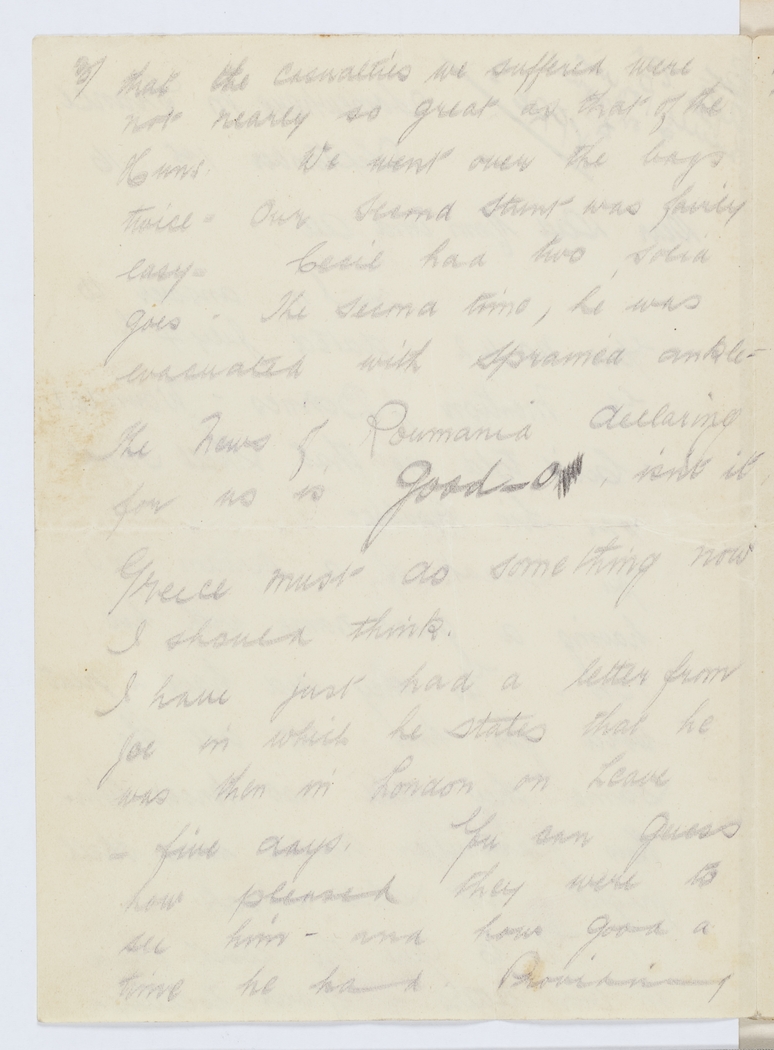 3/ that the casualties we suffered were
not nearly so great as that of the
Huns. We went over the bags
twice - Our second stunt was fairly
easy - Cecil had two solid
goes - The second time, he was
evacuated with sprained ankle -
The News of Roumania declaring
for us is Good-O, isn't it,
Greece must do something now
I should think.
I have just had a letter from
Joe in which he states that he
was then in London on Leave
- five days. You can guess
how pleased they were to
see him - and how good a
time he had. Providing